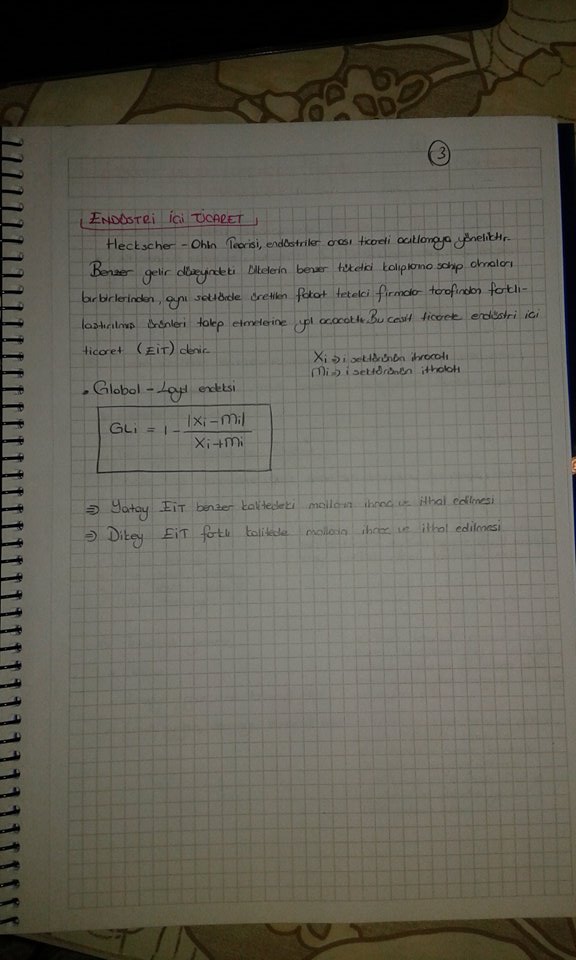 3
ENDÜSTRİ İÇİ TİCARET
Heckscher - Ohlin Teorisi, endüstriler arası ticareti açıklamaya yöneliktir.
Benzer gelir düzeyindeki ülkelerin benzer tüketici kalıplarına sahip olmaları
birbirlerinden, aynı sektörde üretilen fakat tekelci firmalar tarafından farklı-
laştırılmış ürünleri talep etmelerine yol açacaktır. Bu çeşit ticarete endüstri içi
ticaret (EİT) denir.
Xi => i sektörünün ihracatı
Mi => i sektörünün ithalatı
• Global - Loyd endeksi
GLi = 1 - |Xi - Mi| / Xi + Mi
=> Yatay EİT benzer kalitedeki malların ihraç ve ithal edilmesi
=> Dikey EİT farklı kalitede malların ihraç ve ithal edilmesi